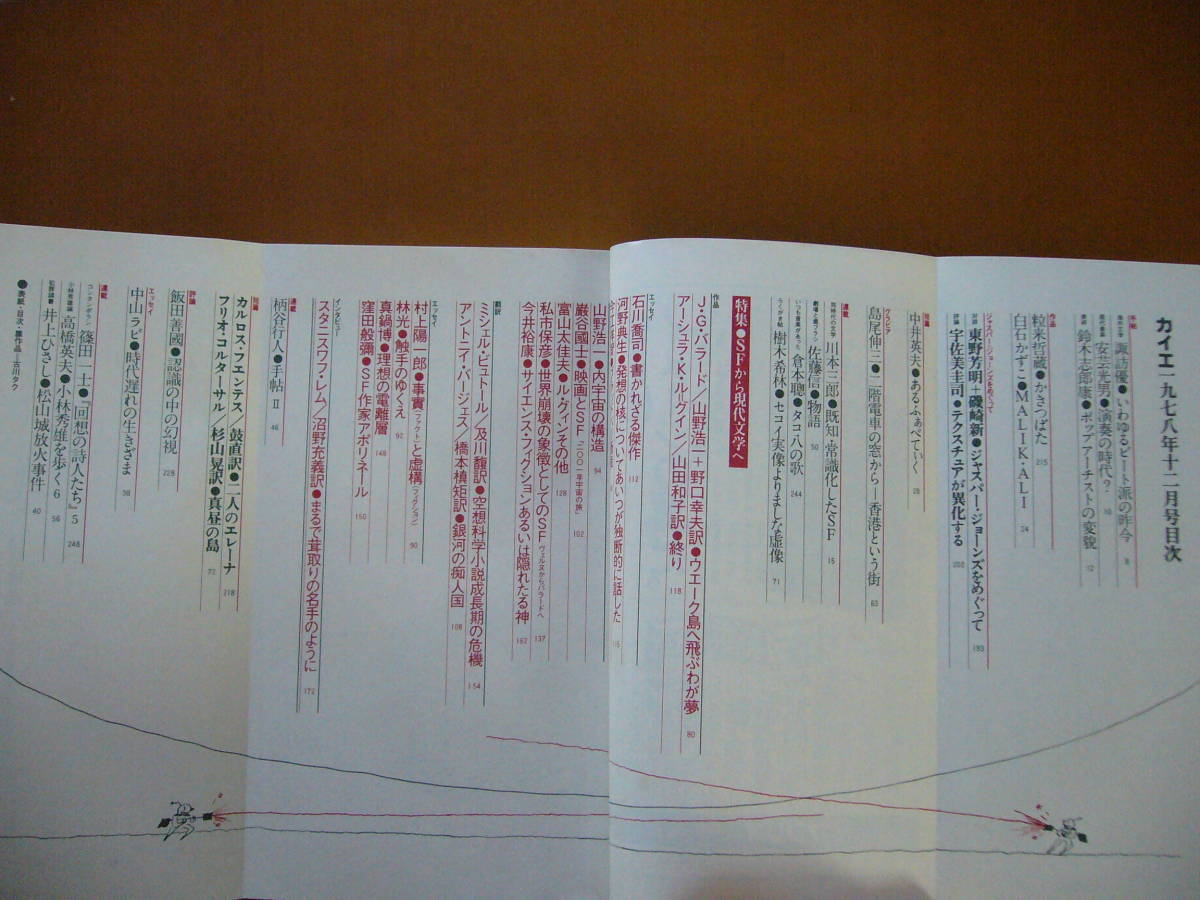 カイエ一九七八年十二月号目次
手帖
諏訪優●いわゆるビート派の昨今 8
安芸光男●演奏の時代? 10
鈴木志郎康●ポップアーチストの変貌 12
作品
粒来哲蔵●かきつばた 215
白石かずこ●MALIK・ALI 24
ジャスパー・ジョーンズをめぐって
対談 東野芳明+磯崎新●ジャスパー・ジョーンズをめぐって 193
評論 宇佐美圭司●テクスチュアが異化する 202
短篇
中井英夫●あるふぁべてぃく 28
グラビア
島尾伸三●二階電車の窓から―香港という街 63
連載
同時代の文学 川本三郎●既知・常識化したSF 15
佐藤信●物語 50
いつも音楽があった 倉本聰●タコ八の歌 244
らくがき帖 樹木希林●セコイ実像よりましな虚像 71
特集●SFから現代文学へ
作品
J・G・バラード/山野浩一+野口幸夫訳●ウエーク島へ飛ぶわが夢 80
アーシュラ・K・ル=グイン/山田和子訳●終り 118
エッセイ
石川喬司●書かれざる傑作 112
河野典生●発想の核についてあいつが独断的に話した
山野浩一●内宇宙の構造 94
巖谷國士●映画とSF 「二〇〇一年宇宙の旅」 102
富山太佳夫●ル・グィンその他 128
私市保彦●世界崩壊の象徴としてのSF ヴェルヌからバラードへ 137
今井裕康●サイエンス・フィクションあるいは隠れたる神 162
翻訳
ミシェル・ビュトール/及川馥訳●空想科学小説成長期の危機 154
アントニイ・バージェス/橋本槙矩訳●銀河の痴人国 108
エッセイ
村上陽一郎●事實(ファクト)と虚構(フィクション) 90
林光●触手のゆくえ 92
真鍋博●理想の電離層 148
窪田般彌●SF作家アポリネール 150
インタビュー
スタニスワフ・レム/沼野充義訳●まるで茸取りの名手のように 172
連載
柄谷行人●手帖Ⅱ 46
短篇
カルロス・フエンテス/鼓直訳●二人のエレーナ 218
フリオ・コルターサル 杉山晃訳●真昼の島 72
評論
飯田善國●認識の中の幻視 228
エッセイ
中山ラビ●時代遅れの生きざま 38
連載
コンタンポラン 篠田一士●『回想の詩人たち』5 248
小林秀雄論 高橋英夫●小林秀雄を歩く6 56
犯罪調書 井上ひさし●松山城放火事件 40
●表紙・目次・扉作品―古川タク